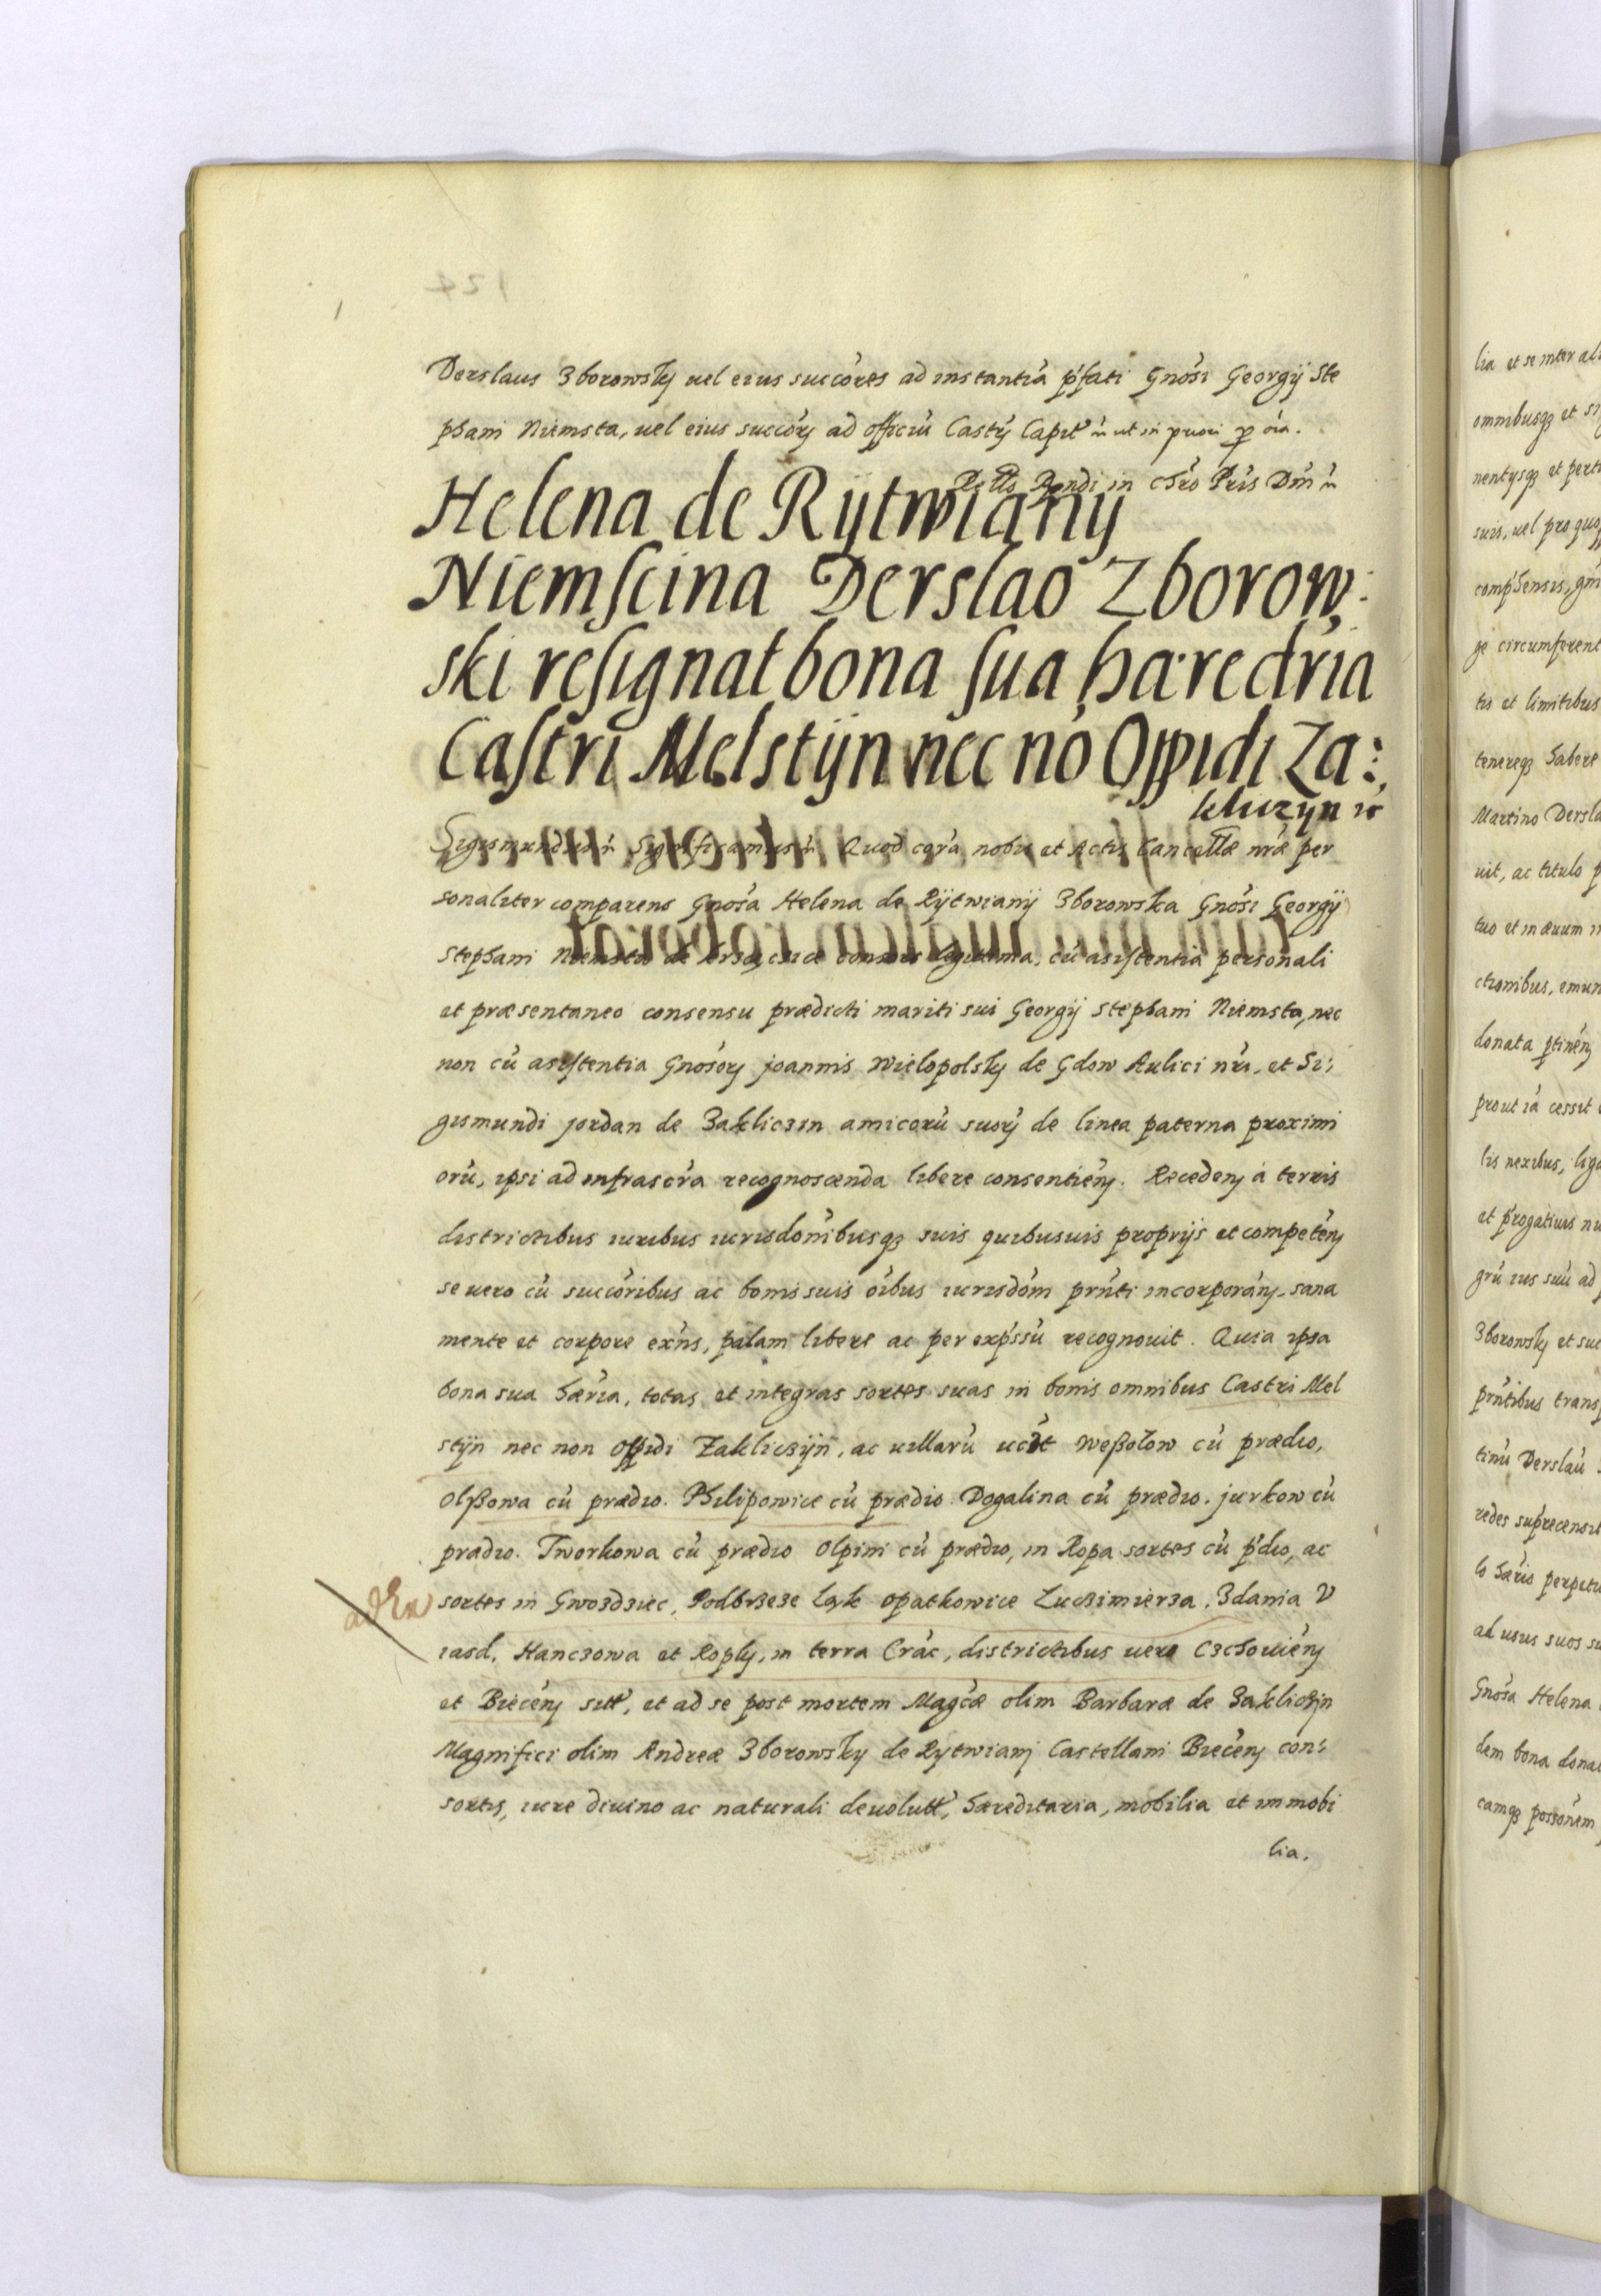 Derslaus Zborowsky uel eius succóres ad instantiá p'fati Gnósi Georgij Ste
phani Niemsta, uel eius succórų ad officiú Capit ut in priori p oia.
Rndi in Pris Dni
Helena de Rÿtwianÿ
Niemscina Derslao Zborow:
ski resignat bona sua hæredria
Castri Melstÿn nec nó Oppidi Za:
kliczÿn
Sigismundus Significamus Quod corá nobis et Actis Cancellæ nræ per
sonaliter comparens Gnósa Helena de Rÿtwianÿ Zborowska Gnósi Georgÿ
Stephani consors legittima, cú asistentia personali
et præsentaneo consensu prædicti mariti sui Georgÿ Stephani Niemsta, nec
non cú asistentia Gnósorų Joannis Wielopolsky de Gdow Aulici nri, et Si:
gismundi Jordan de Zakliczin amicorú suorų de linea paterna proximi
orú, ipsi ad infrascrá recognoscenda libere consentień. Recedeń á terris
districtibus iuribus iurisdónibusq suis quibusuis proprijs et competeń
se uero cú succóribus ac bonis suis óibus iurisdóni prńti incorporań, sana
mente et corpore exńs, palam libere ac per expŕssú recognouit. Quia ipsa
bona sua hæria, totas et integras sortes suas in bonis omnibus Castri Mel
stÿn nec non Oppidi Zakliczÿn, ac uillarú Weßolow cú prædio,
Olßowa cú prædio. Philipowice cú prædio. Dogalina cú prædio. Jurkow cú
prædio. Tworkowa cú prædio Olpini cú prædio, in Ropa sortes cú p'dio, ac
sortes in Gwozdziec, Podbrzeze Łąk Opatkowice Luczimierza. Zdania V
iasd, Hanczowa et Ropky, in terra Crác, districtibus uero Czchouień
et Bieceń sitt, et ad se post mortem Magcæ olim Barbaræ de Zakliczÿn
Magnifici olim Andreæ Zborowsky de Rytwianj Castellani Bieceń con:
sortis, iure diuino ac naturali deuolutt, hæreditaria, mobilia et immobi
lia.
lia et se inter ali
omnibusq et si
nentÿsq et perti
suis, uel pro quo
comphensis, gn
je circumferent
tis et limitibus
tenereq habere
Martino Dersla
uit, ac titulo p
tuo et in æuum
ctionibus, emun
donata ptineń
prout iá cessit
lis nexibus, liga
et prógatiuis nu
grú ius suú ad
Zborowsky et suc
prńtibus trans
tinú Derslaú
redes supŕecensit
lo hærio perpetu
ad usus suos su
Gnósa Helena
dem bona dona
camq possónem